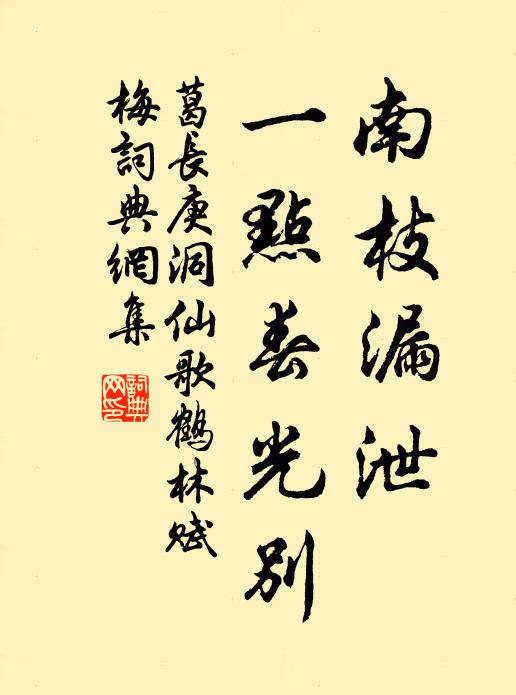 南枝漏泄
一點春光別
葛長庚洞仙歌鶴林賦
梅詞典網集
詞典網印